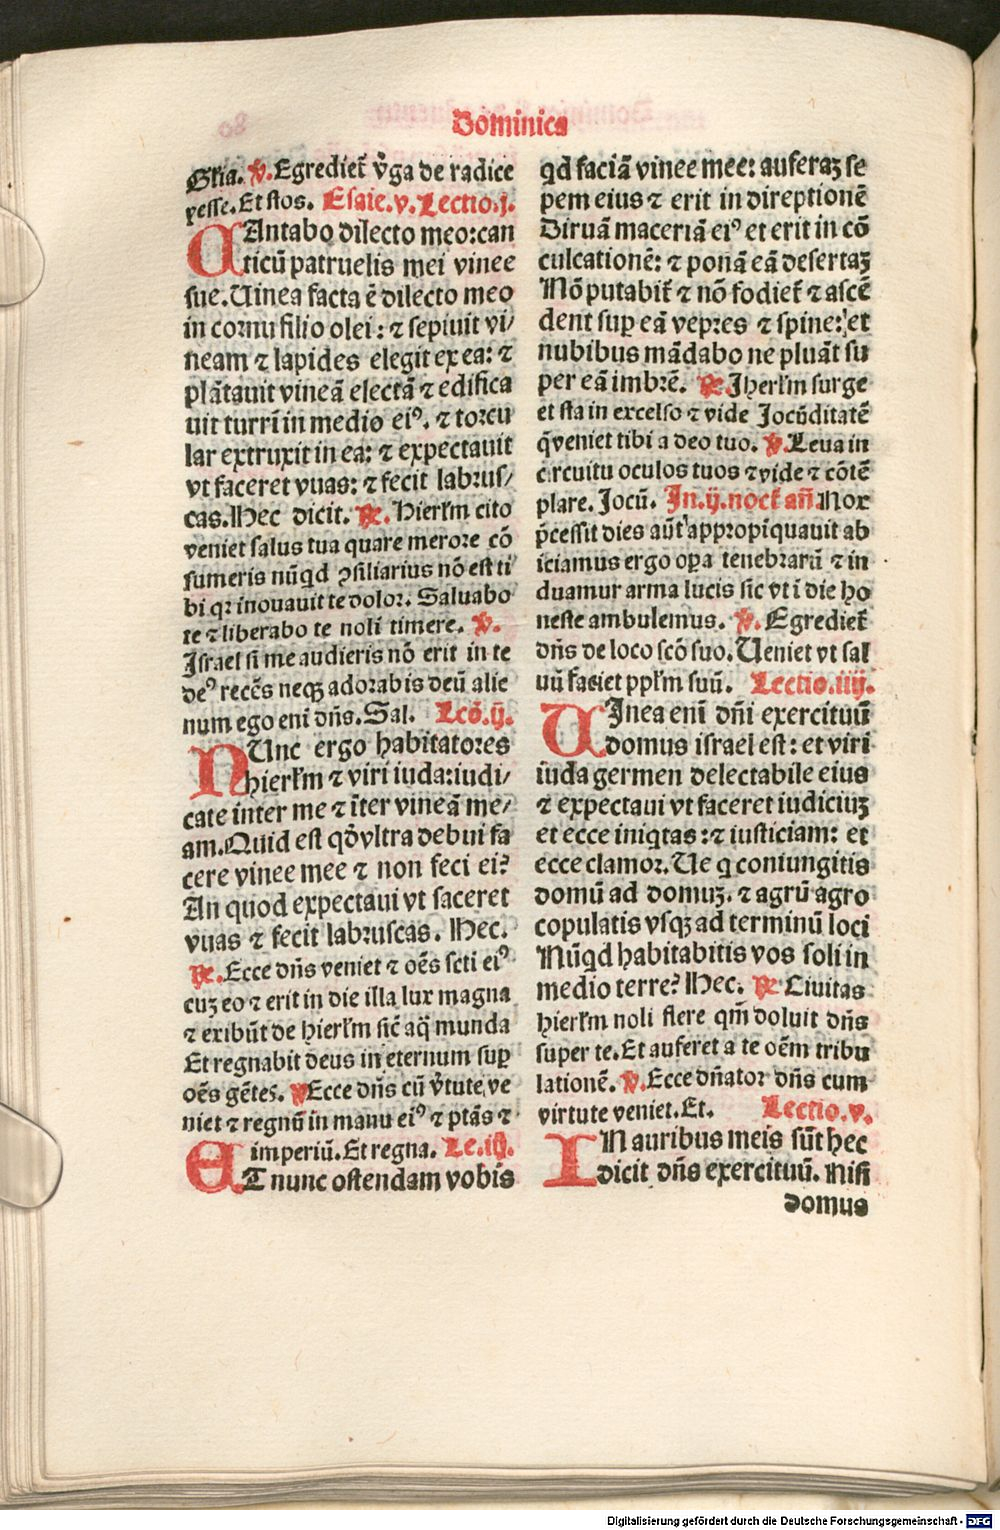 Dominica
Gl'ia. ℣. Egrediet̃ v̓ga de radice
yesse. Et flos. Esaie. v. Lectio. j.
CAntabo dilecto meo: can
ticū patruelis mei vinee
sue. Uinea facta ē dilecto meo
in cornu filio olei: ⁊ sepiuit vi/
neam ⁊ lapides elegit ex ea: ⁊
plātauit vineā electā ⁊ edifica
uit turrī in medio eiꝰ. ⁊ torcu
lar extruxit in ea: ⁊ expectauit
vt faceret vuas: ⁊ fecit labrus/
cas. Hec dicit. ℟. Hierl'm cito
veniet salus tua quare merore cō
sumeris nūqd ꝯsiliarius nō est ti
bi qꝛ inouauit te dolor. Saluabo
te ⁊ liberabo te noli timere. ℣.
Israel si me audieris nō erit in te
deꝰ recēs neqꝫ adorabis deū alie
num ego eni dn̄s. Sal. Lcō. ij.
NUnc ergo habitatores
hierl'm ⁊ viri iuda: iudi/
cate inter me ⁊ īter vineā me/
am. Quid est qō vltra debui fa
cere vinee mee ⁊ non feci ei?
An quod expectaui vt faceret
vuas ⁊ fecit labruscas. Hec.
℟. Ecce dn̄s veniet ⁊ oēs scti eiꝰ
cuꝫ eo ⁊ erit in die illa lux magna
⁊ exibūt de hierl'm sic̄ aq̄ munda
Et regnabit deus in eternum suꝑ
oēs gētes. ℣ Ecce dn̄s cū v̓tute ve
niet ⁊ regnū in manu eiꝰ ⁊ ptās ⁊
imperiū. Et regna. Le. iij.
ET nunc ostendam vobis
qd faciā vinee mee: auferaꝫ se
pem eius ⁊ erit in direptionē
Diruā maceriā eiꝰ et erit in cō
culcationē: ⁊ ponā eā desertaꝫ
Nō putabit̃ ⁊ nō fodiet̃ ⁊ ascē
dent suꝑ eā vepres ⁊ spine: et
nubibus mādabo ne pluāt su
per eā imbrē. ℟. Iherl'm surge
et sta in excelso ⁊ vide Jocūditatē
q̄ veniet tibi a deo tuo. ℣. Leua in
circuitu oculos tuos ⁊ vide ⁊ cōtē
plare. Jocū. In. ij. noct̃ an̄. Nox
p̄cessit dies aūt appropīquauit ab
iciamus ergo oꝑa tenebrarū ⁊ in
duamur arma lucis sic vt ī die ho
neste ambulemus. ℣. Egrediet̃
dn̄s de loco scō suo. Ueniet vt sal
uū faciet ppl'm suū. Lectio. iiij.
UInea enī dn̄i exercituū
domus israel est: et viri
iuda germen delectabile eius
⁊ expectaui vt faceret iudiciuꝫ
et ecce iniqtas: ⁊ iusticiam: et
ecce clamor. Ue q coniungitis
domū ad domuꝫ. ⁊ agrū agro
copulatis vsqꝫ ad terminū loci
Nūqd habitabitis vos soli in
medio terre? Hec. ℟ Ciuitas
hierl'm noli flere qm̄ doluit dn̄s
super te. Et auferet a te oēm tribu
lationē. ℣. Ecce dn̄ator dn̄s cum
virtute veniet. Et. Lectio. v.
IN auribus meis sūt hec
dicit dn̄s exercituū. Nisi
domus
Digitalisierung gefördert durch die Deutsche Forschungsgemeinschaft - DFG